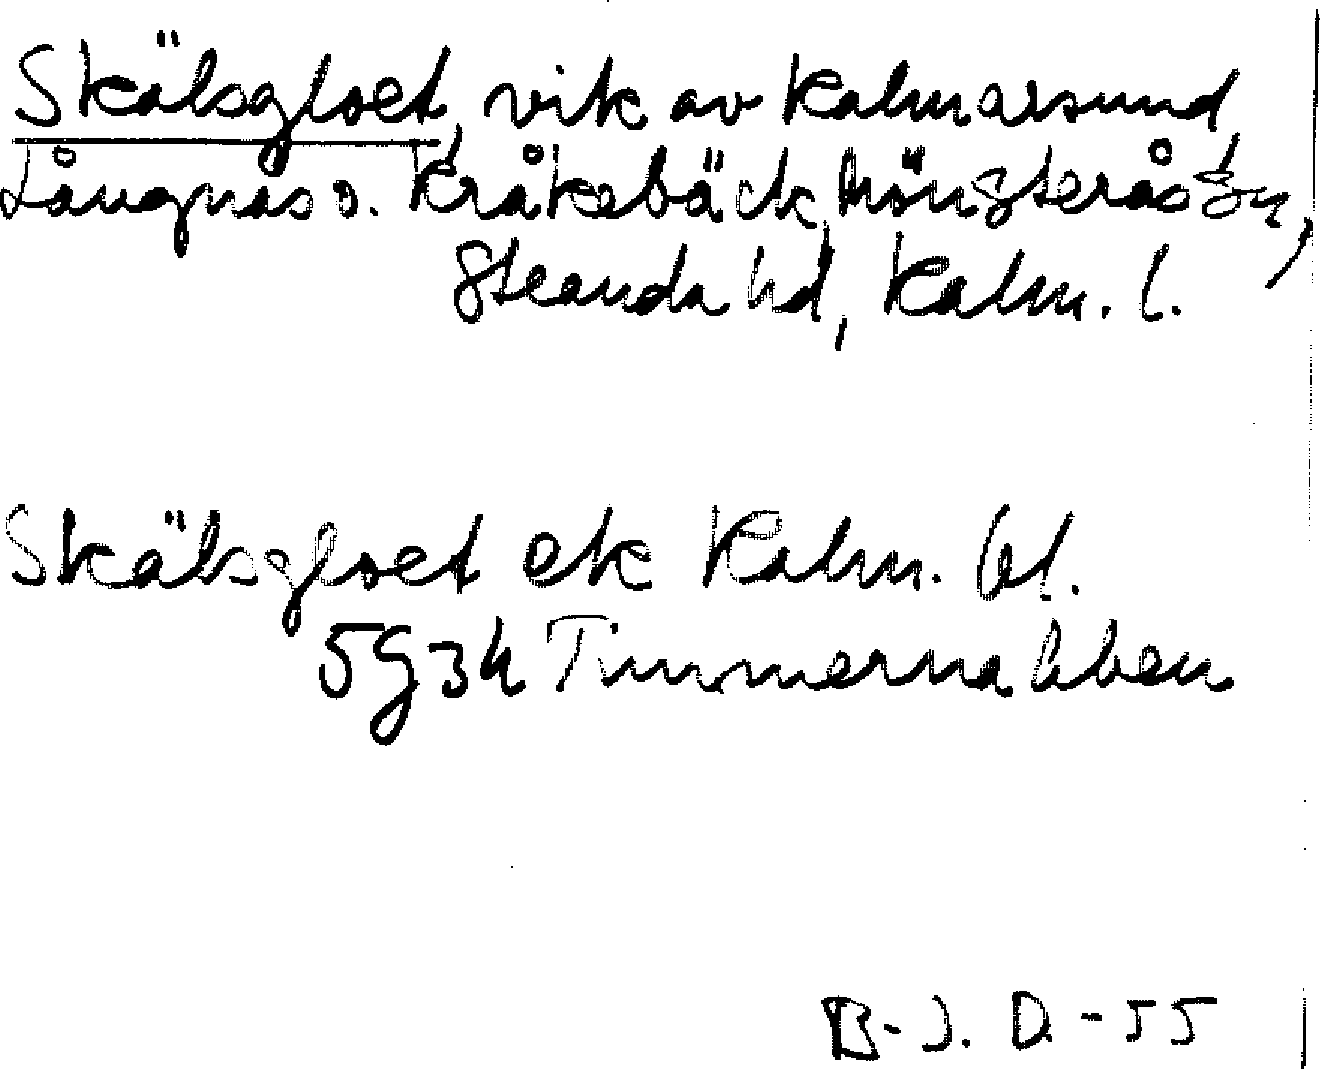 Skälsgloet, vik av Kalmarsund,
Långnäs o. Kråkebäck, Mönsterås sn,
Stranda hd, Kalm. l.
Skälsgloet ek Kalm. bl.
5g34 Timmernabben
B-J. D. -55